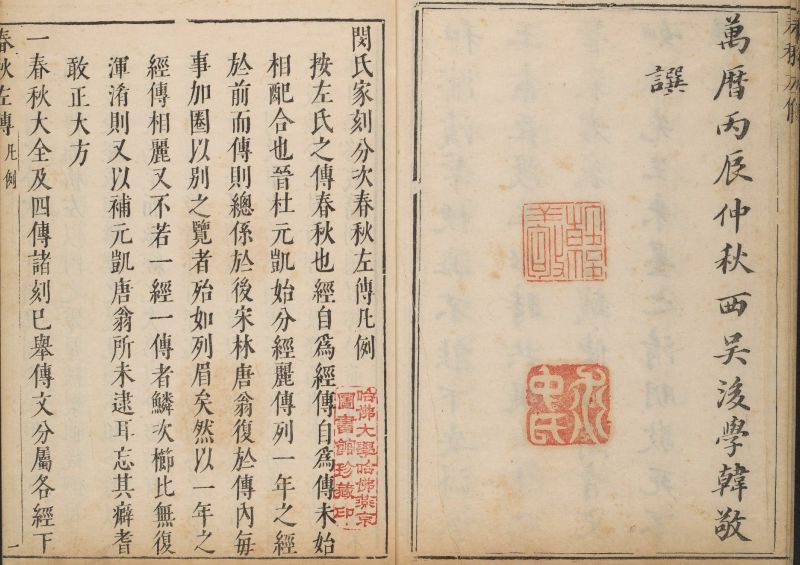 萬曆丙辰仲秋西吳後學韓敬
譔
韓敬
閔氏家刻分次春秋左傳凡例
按左氏之傳春秋也經自爲經傳自爲傳未始
相配合也晉杜元凱始分經麗傳列一年之經
於前而傳則總係於後宋林唐翁復於傳內每
事加圈以別之覽者殆如列眉矣然以一年之
經傳相麗又不若一經一傳者鱗次櫛比無復
渾淆則又以補元凱唐翁所未逮耳忘其癖耆
敢正大方
一春秋大全及四傳諸刻已舉傳文分屬各經下
哈佛大學哈佛燕京
圖書館珍藏印
春秋左傳 凡例
一